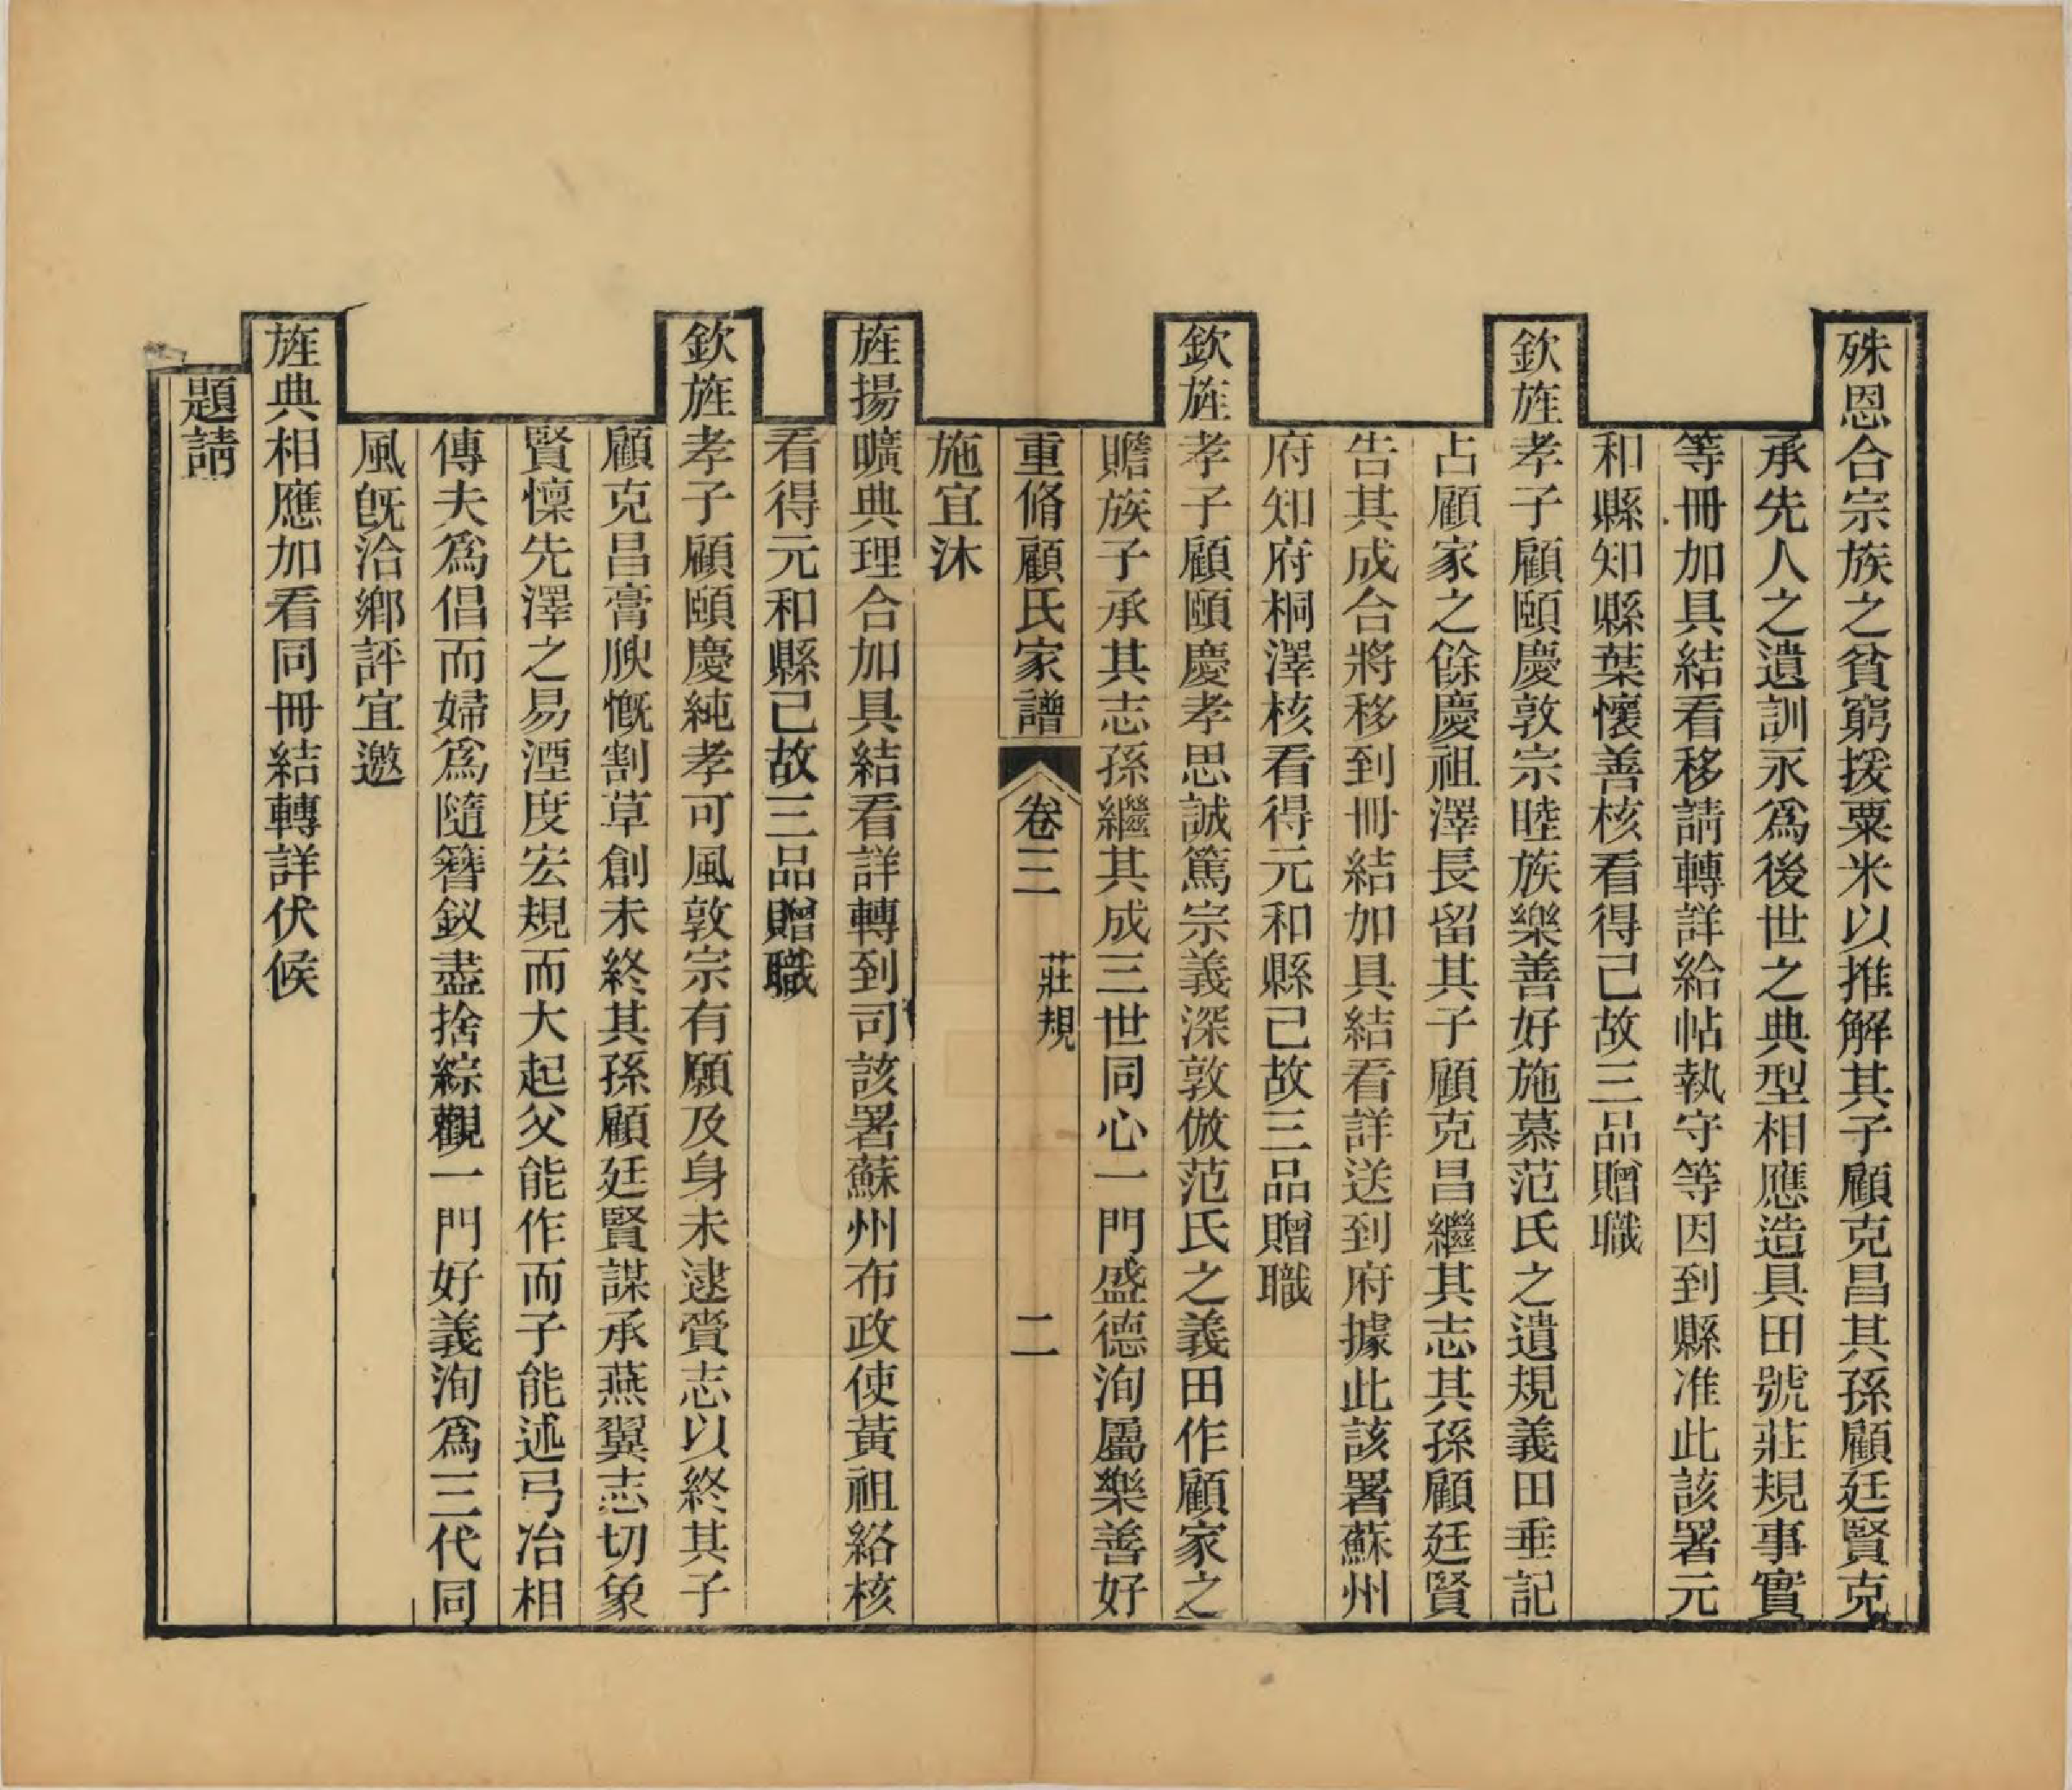 殊恩合宗族之貧窮援粟米以推解其子顧克昌其孫顧廷賢克
承先人之遺訓永爲後世之典型相應造具田號莊規事實
等冊加具結看移請轉詳給帖執守等因到縣准此該署元
和縣知縣葉懷善核看得已故三品贈職
欽旌孝子顧頤慶敦宗睦族樂善好施慕范氏之遺規義田垂記
占顧家之餘慶祖澤長留其子顧克昌繼其志其孫顧廷賢
告其成合將移到冊結加具結看詳送到府據此該署蘇州
府知府桐澤核看得元和縣已故三品贈職
欽旌孝子顧頤慶孝思誠篤宗義深敦倣范氏之義田作顧家之
贍族子承其志孫繼其成三世同心一門盛德洵屬樂善好
重脩顧氏家譜 卷三 莊規 二
施宜沐
旌揚曠典理合加具結看詳轉到司該署蘇州布政使黃祖絡核
看得元和縣已故三品贈職
欽旌孝子顧頤慶純孝可風敦宗有願及身未逮賫志以終其子
顧克昌膏腴慨割草創未終其孫顧廷賢謀承燕翼志切象
賢懍先澤之易湮度宏規而大起父能作而子能述弓冶相
傳夫爲倡而婦爲隨簪釵盡捨綜觀一門好義洵爲三代同
風旣洽鄉評宜邀
旌典相應加看同冊結轉詳伏候
題請